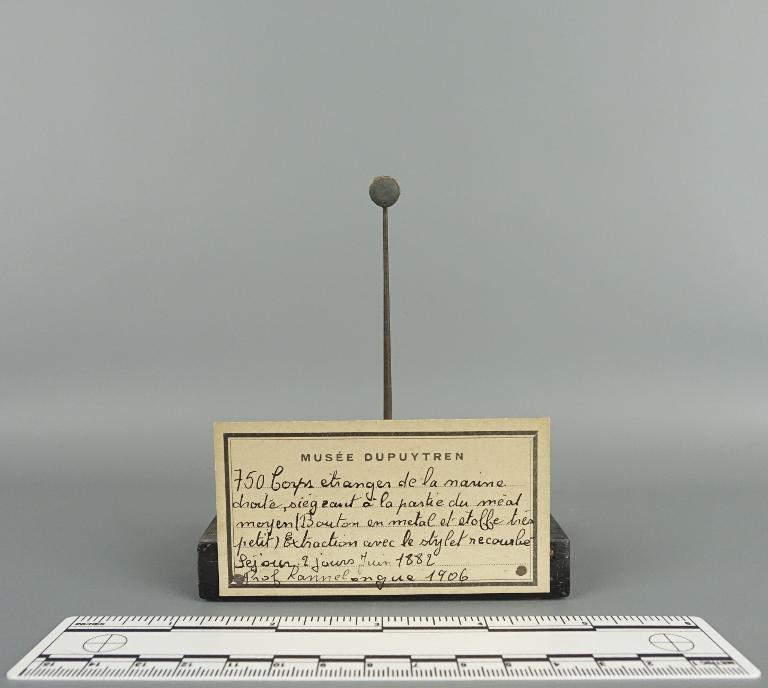 MUSÉE DUPUYTREN
750 Corps etranger de la narine
droite, siégeant à la partie du méat
moyen (Bouton en metal et etoffe très
petit) Extraction avec le stylet recourbé
Séjour 2 jours Juin 1882
Prof Lannelongue 1906
15 14 13 12 11 10 9 8 7 6 5 4 3 2 1